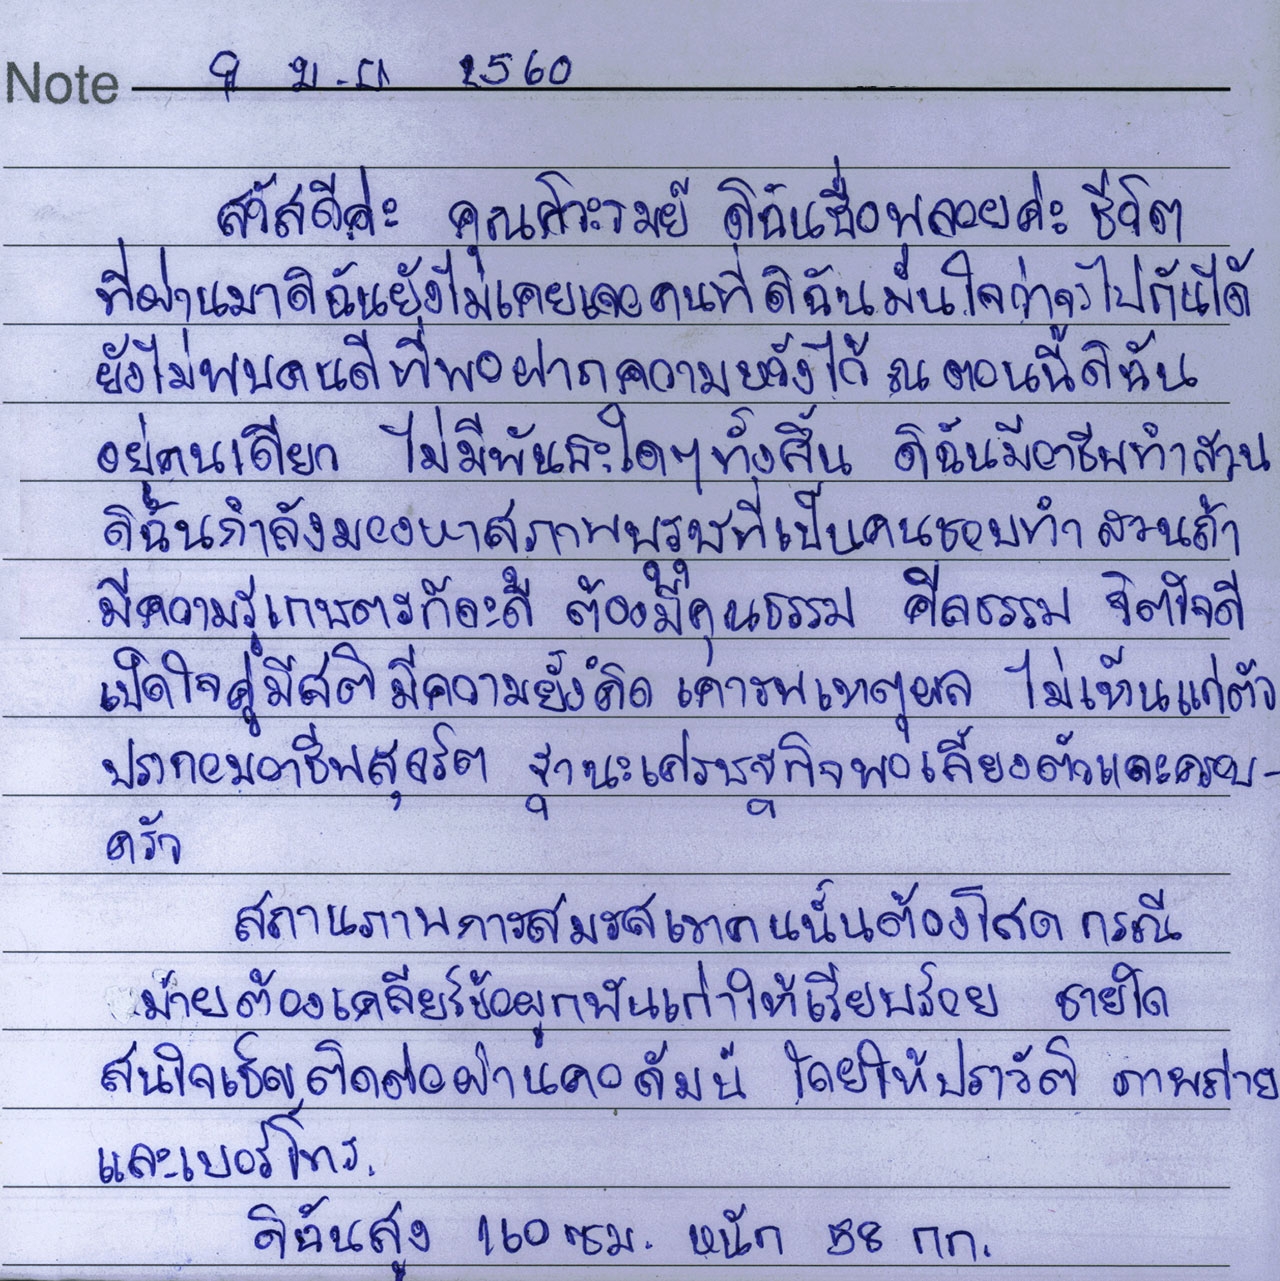 Note 9 ม.ค 2560
สวัสดีค่ะ คุณศิวะรมย์ ดิฉันชื่อพลอยค่ะ ชีวิต
ที่ผ่านมาดิฉันยังไม่เคยเจอคนที่ดิฉันมั่นใจว่าจะไปกันได้
ยังไม่พบคนดีที่พอฝากความหวังได้ ณ ตอนนี้ดิฉัน
อยู่คนเดียว ไม่มีพันธะใดๆทั้งสิ้น ดิฉันมีอาชีพทำสวน
ดิฉันกำลังมองหาสุภาพบุรุษที่เป็นคนชอบทำสวนถ้า
มีความรู้เกษตรก็จะดี ต้องมีคุณธรรม ศีลธรรม จิตใจดี
เปิดใจคู่มีสติมีความยั้งคิด เคารพเหตุผล ไม่เห็นแก่ตัว
ประกอบอาชีพสุจริต ฐานะเศรษฐกิจพอเลี้ยงตัวและครอบ-
ครัว
สถานภาพการสมรสเขาคนนั้นต้องโสด กรณี
ม่ายต้องเคลียร์ข้อผูกพันเก่าให้เรียบร้อย ชายใด
สนใจเชิญติดต่อผ่านคอลัมน์ โดยให้ประวัติ ภาพถ่าย
และเบอร์โทร.
ดิฉันสูง 160 ซม. หนัก 58 กก.